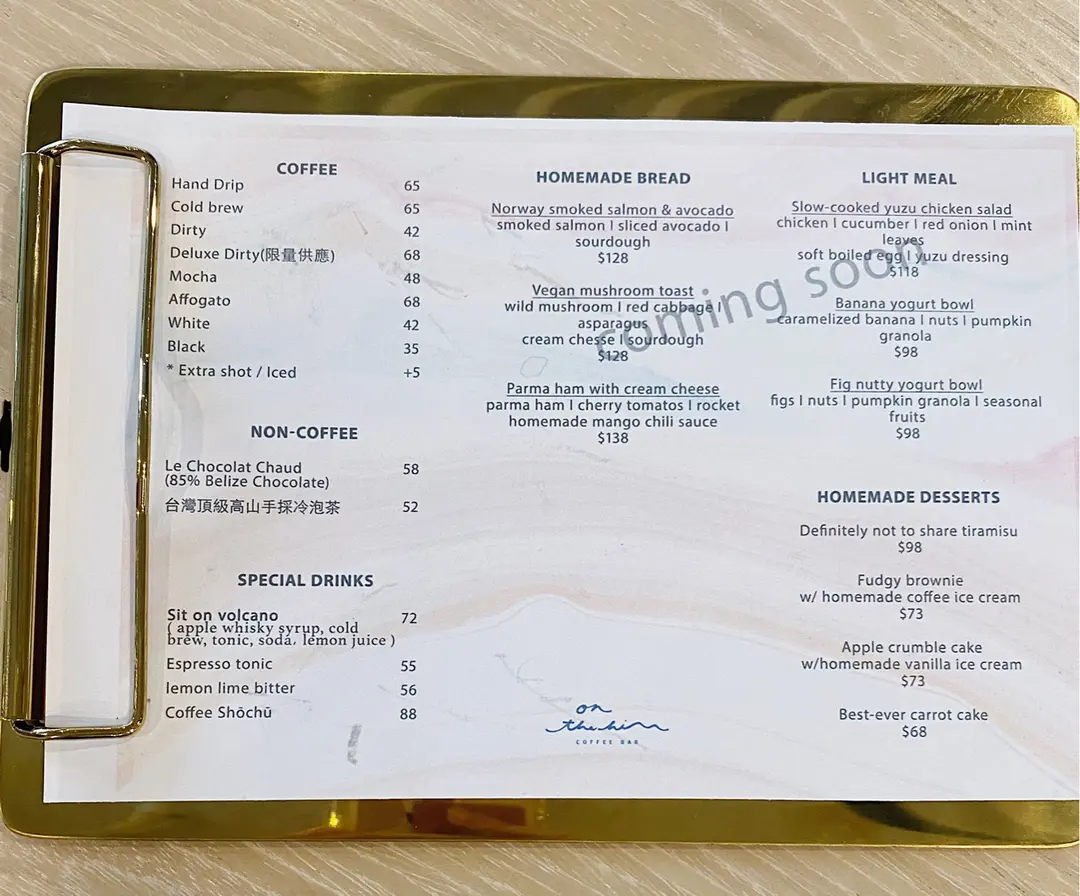 COFFEE
Hand Drip 65
Cold brew 65
Dirty 42
Deluxe Dirty(限量供應) 68
Mocha 48
Affogato 68
White 42
Black 35
* Extra shot / Iced +5
NON-COFFEE
Le Chocolat Chaud 58
(85% Belize Chocolate)
台灣頂級高山手採冷泡茶 52
SPECIAL DRINKS
Sit on volcano 72
( apple whisky syrup, cold
brew, tonic, soda, lemon juice )
Espresso tonic 55
lemon lime bitter 56
Coffee Shōchū 88
HOMEMADE BREAD
Norway smoked salmon & avocado
smoked salmon I sliced avocado I
sourdough
$128
Vegan mushroom toast
wild mushroom I red cabbage I
asparagus
cream chesse I sourdough
$128
Parma ham with cream cheese
parma ham I cherry tomatos I rocket
homemade mango chili sauce
$138
coming soon
on
the him
COFFEE BAR
LIGHT MEAL
Slow-cooked yuzu chicken salad
chicken I cucumber I red onion I mint
leaves
soft boiled egg I yuzu dressing
$118
Banana yogurt bowl
caramelized banana I nuts I pumpkin
granola
$98
Fig nutty yogurt bowl
figs I nuts I pumpkin granola I seasonal
fruits
$98
HOMEMADE DESSERTS
Definitely not to share tiramisu
$98
Fudgy brownie
w/ homemade coffee ice cream
$73
Apple crumble cake
w/homemade vanilla ice cream
$73
Best-ever carrot cake
$68